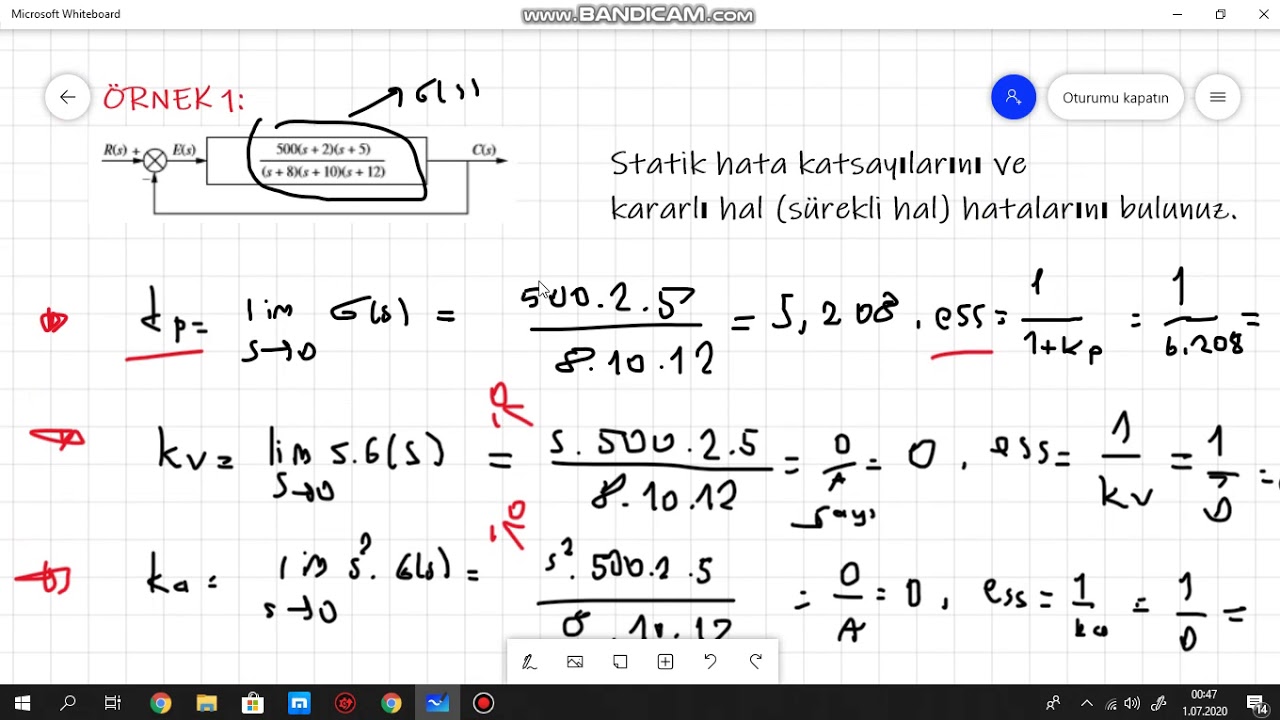 Microsoft Whiteboard
www.BANDICAM.com
ÖRNEK 1:
G(s)
Oturumu kapatın
R(s) + E(s) 500(s + 2)(s + 5) C(s)
(s + 8)(s + 10)(s + 12)
−
Statik hata katsayılarını ve
kararlı hal (sürekli hal) hatalarını bulunuz.
kp = lim s→0 G(s) = 500.2.5 / 8.10.12 = 5,208 . ess = 1 / 1+kp = 1 / 6.208 =
kv = lim s→0 s.G(s) = s.500.2.5 / 8.10.12 = 0 / A = 0 , ess = 1 / kv = 1 / 0 =
0
sayı
ka = lim s→0 s². G(s) = s².500.2.5 / 8.10.12 = 0 / A = 0 , ess = 1 / ka = 1 / 0 =
0
00:47
1.07.2020
14